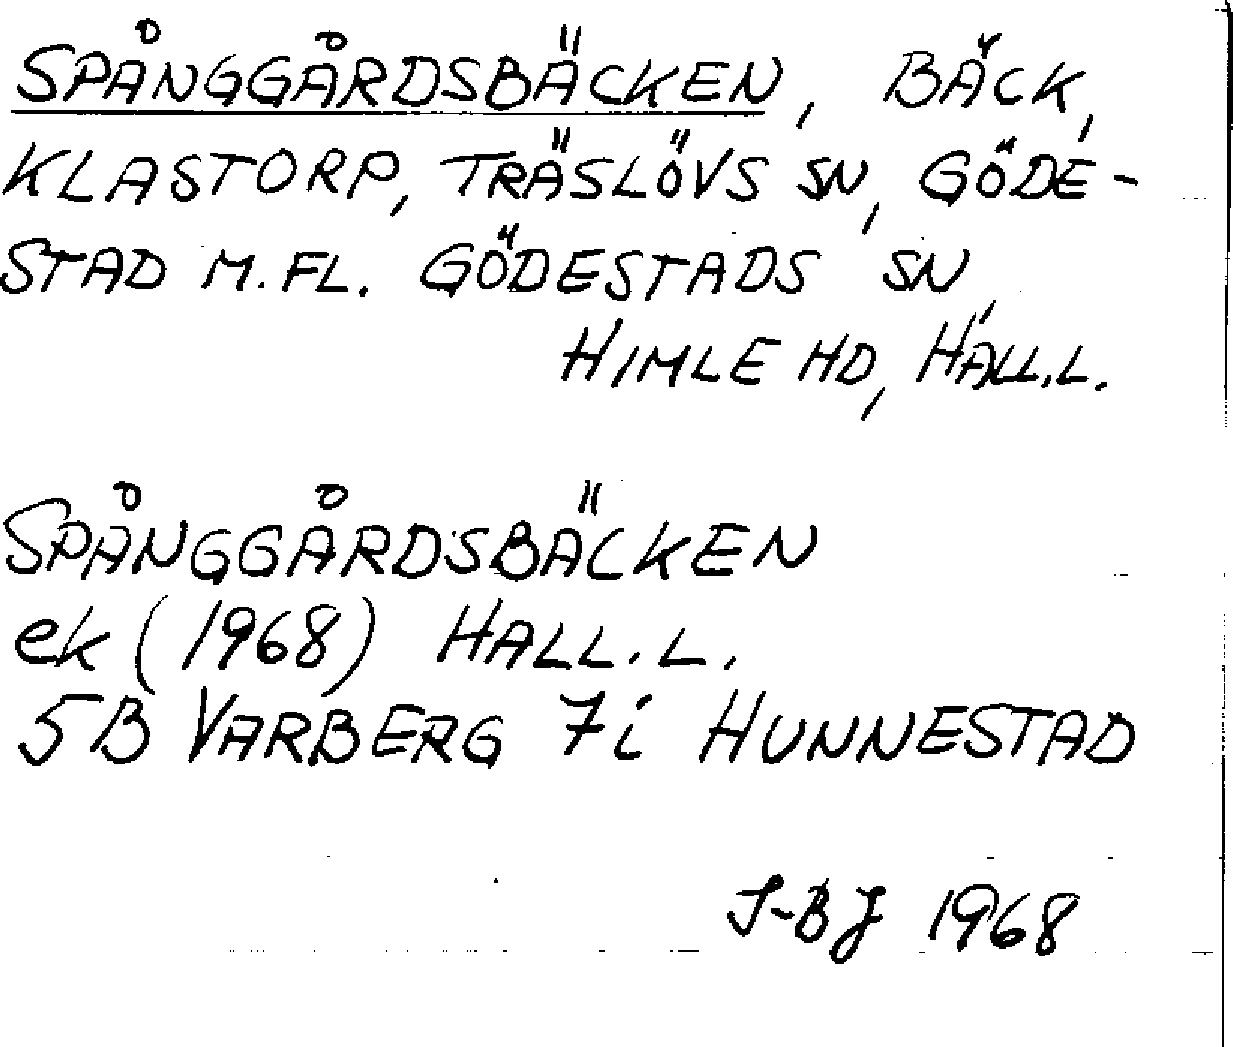 SPÅNGGÅRDSBÄCKEN, BÄCK,
KLASTORP, TRÄSLÖVS SN, GÖDE-
STAD M.FL. GÖDESTADS SN,
HIMLE HD, HALL.L.
SPÅNGGÅRDSBÄCKEN
ek (1968) HALL.L.
5B VARBERG 7i HUNNESTAD
I-BJ 1968